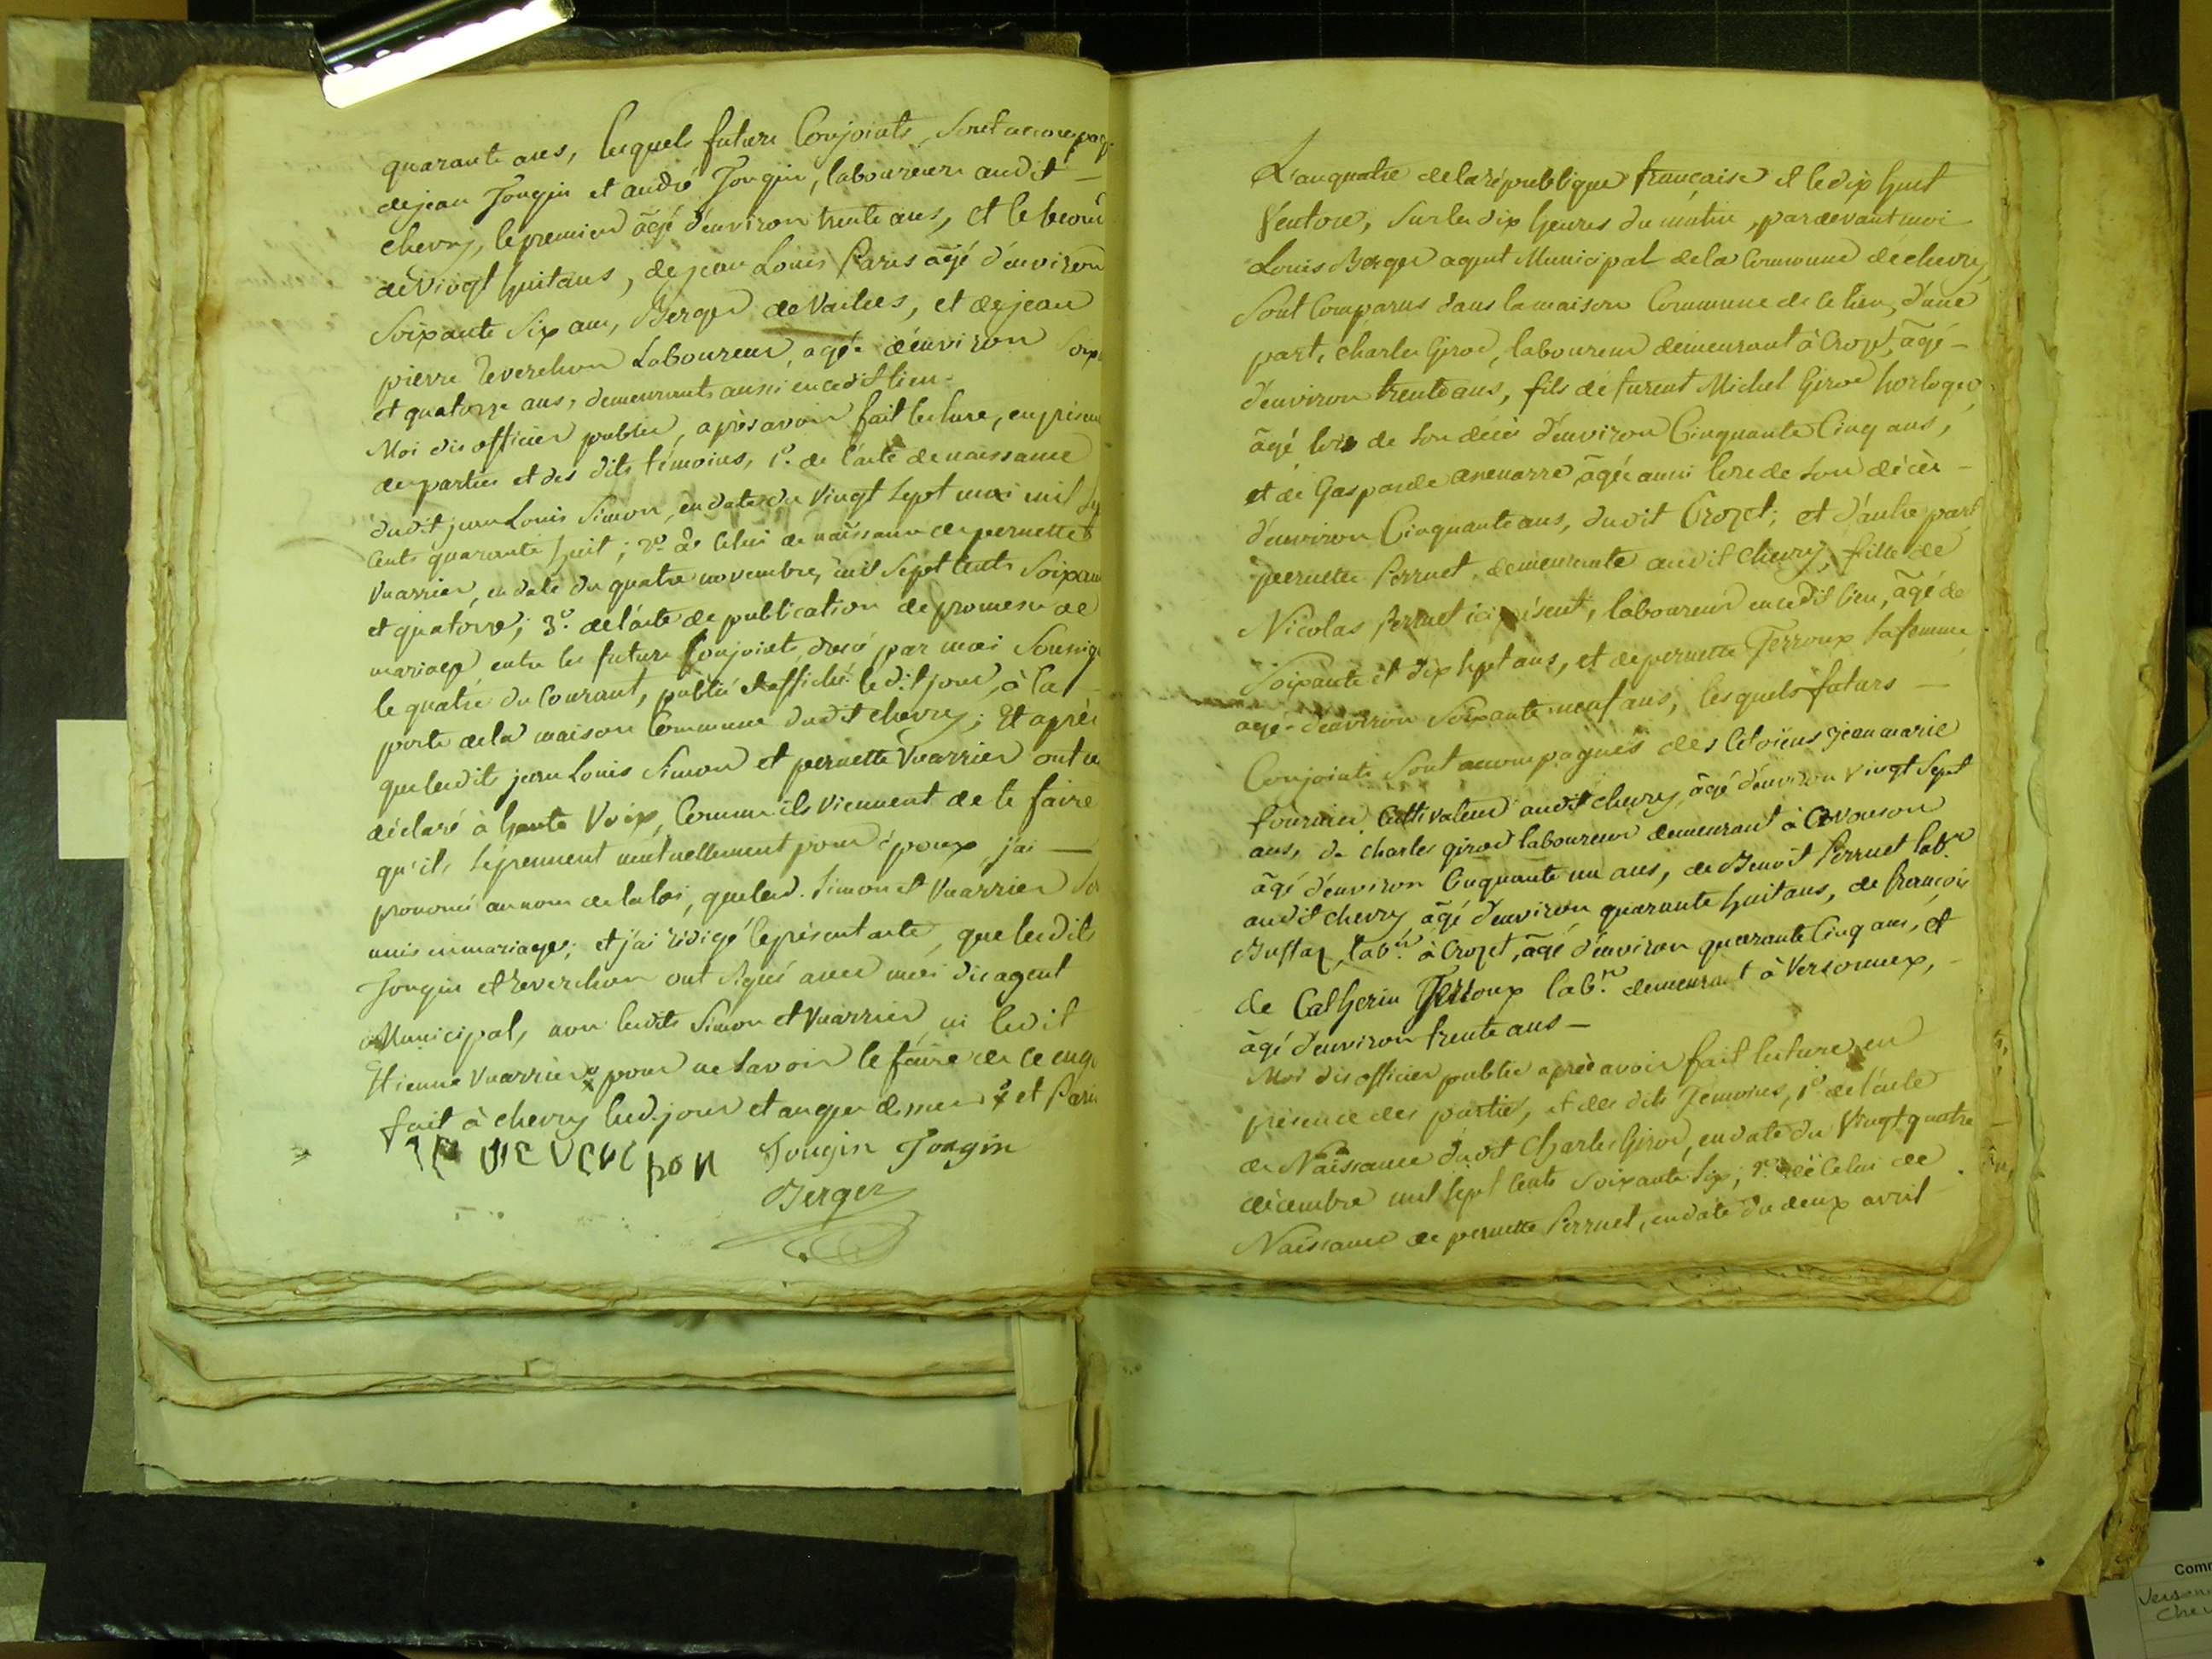 quarante ans, lesquels futurs Conjoints, Sont accompag
de jean Jongin et andré Jongin, laboureurs audit —
chevry, le premier âgé d'environ trente ans, et le second
de vingt huit ans, de jean Louis Paris âgé d'environ
Soixante Six ans, Berger de Vaches, et de jean
pierre Reverchon Laboureur, agé d'environ Soix
et quatorze ans, demeurants aussi en cedit lieu.
Moi dis officier public, après avoir fait lecture, en présen
des parties et des dits témoins, 1º. de l'acte de naissance
dudit jean Louis Simon, en date du Vingt Sept mai mil Sep
Cents quarante huit; 2º. de Celui de naissance de pernette
Vuarrier, en date du quatre novembre, mil Sept Cents Soixan
et quatorze; 3º. de l'acte de publication de promesse de
mariage entre les futurs Conjoints, dressé par moi Soussig
le quatre du Courant, publié et affiché ledit jour, à la —
porte de la maison Commune dudit chevry; Et après
que lesdits jean Louis Simon et pernette Vuarrier ont
déclaré à haute Voix, Comme ils viennent de le faire
qu'ils Se prennent mutuellement pour époux, j'ai —
prononcé au nom de la loi, que lesd. Simon et Vuarrier So
unis en mariage; et j'ai rédigé le présent acte, que lesdits
Jongin et Reverchon ont Signés avec moi dis agent
Municipal, non lesdits Simon et Vuarrier ni ledit
Etienne Vuarrier x pour ne Savoir le faire de ce enq
fait à chevry lesd. jour et an que dessus x et Paris
REVERCHON Jongin Jongin
Berger
L'an quatre de la république française et le dix huit
Ventose, Sur les dix heures du matin, par devant moi
Louis Berger agent Municipal de la Commune de chevry,
Sont Comparus dans la maison Commune de ce lieu, d'une
part, charles Girod, laboureur demeurant à Crozet, âgé —
d'environ trente ans, fils de furent Michel Girod horloger,
âgé lors de Son décès d'environ Cinquante Cinq ans,
et de Gasparde âgée aussi lors de Son décès —
d'environ Cinquante ans, dudit Crozet; et d'autre part
pernette Perruet, demeurante audit chevry, fille de
Nicolas Perruet ici présent, laboureur en cedit lieu, âgé de
Soixante et dix Sept ans, et de pernette Terroux Sa femme
agé d'environ Soixante neuf ans, lesquels futurs —
Conjoints Sont accompagnés des Citoiens jean marie
fournier Cultivateur audit chevry, âgé d'environ vingt Sept
ans, de charles girod laboureur demeurant à Cevouson
âgé d'environ Cinquante un ans, de Benoit Perruet labr.
audit chevry âgé d'environ quarante huit ans, de françois
Buffaz, labr. à Crozet, âgé d'environ quarante Cinq ans, et
de Catherin Terroux labr. demeurant à Versonnex, —
âgé d'environ trente ans —
Moi dis officier public après avoir fait lecture en
présence des parties, et des dits Témoins, 1º. de l'acte
de Naissance dudit Charles Girod, en date du Vingt quatre
décembre mil Sept Cents Soixante Six; 2º. de Celui de
Naissance de pernette Perruet, en date du deux avril
Comm
Verson
Chev